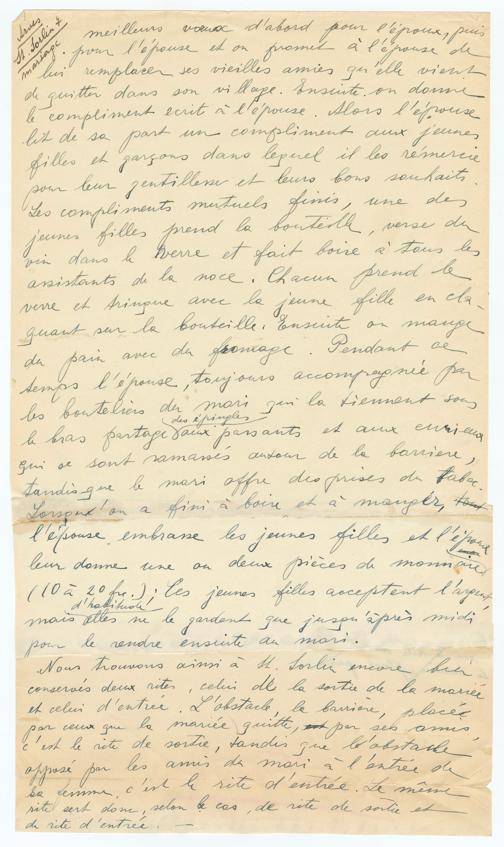 Arves
St. Sorlin +
mariage
meilleurs vœux d'abord pour l'époux, puis
pour l'épouse et on promet à l'épouse de
lui remplacer ses vieilles amies qu'elle vient
de quitter dans son village. Ensuite, on donne
le compliment ecrit à l'épouse. Alors l'épouse
lit de sa part un compliment aux jeunes
filles et garçons dans lequel il les rémercie
pour leur gentillesse et leurs bons souhaits.
Les compliments mutuels finis, une des
jeunes filles prend la bouteille, verse du
vin dans le verre et fait boire à tous les
assistants de la noce. Chacun prend le
verre et tringue avec la jeune fille en cla-
quant sur la bouteille. Ensuite on mange
du pain avec du fromage. Pendant ce
temps l'épouse, toujours accompagnée par
les bouteliers du mari qui la tiennent sous
des épingles
le bras partage aux passants et aux curieux
qui se sont ramassés autour de la barrière,
tandis que le mari offre des prises du tabac.
Lorsqu'on a fini à boire et à manger,
l'épouse embrasse les jeunes filles et l'époux
leur donne une ou deux pièces de monnaie
(10 à 20 frc.); Les jeunes filles acceptent l'argent,
d'habitude
mais elles ne le gardent que jusqu'après midi
pour le rendre ensuite au mari.
Nous trouvons ainsi à St. Sorlin encore bien
conservés deux rites, celui de la sortie de la mariée
et celui d'entrée. L'obstacle, la barrière, placée
par ceux que la mariée quitte, par ses amis,
c'est le rite de sortie, tandis que l'obstacle
opposé par les amis du mari à l'entrée de
sa femme, c'est le rite d'entrée. Le même
rite sert donc, selon le cas, de rite de sortie et
de rite d'entrée. —